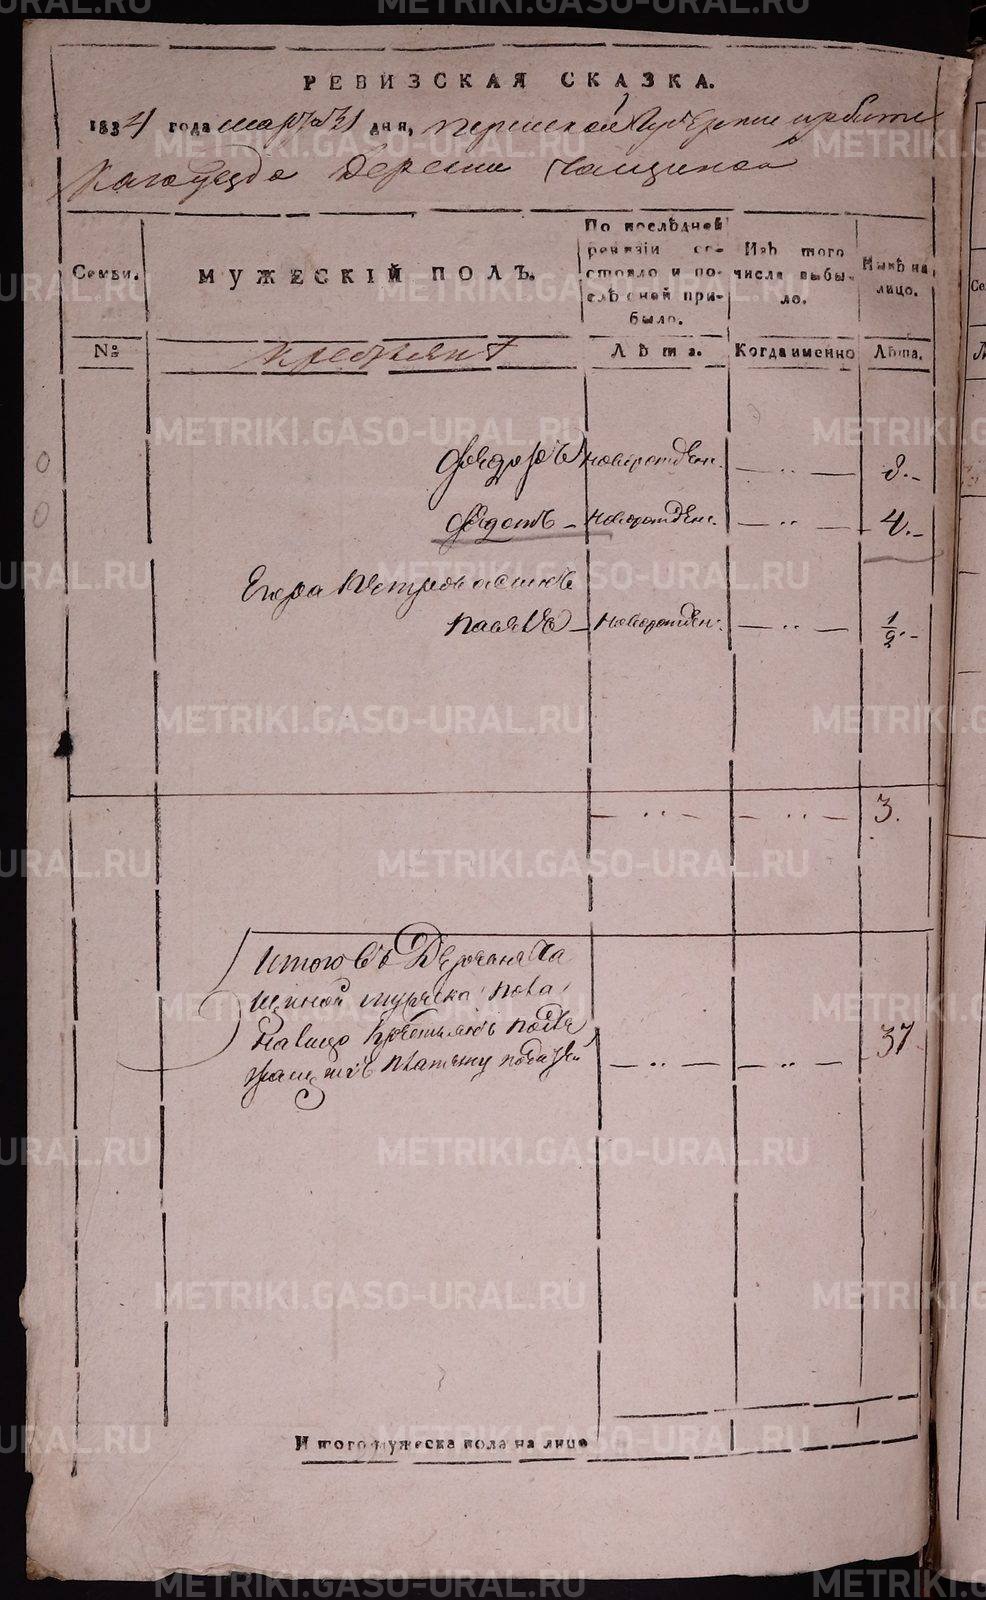 METRIKI.GASO-URAL.RU
РЕВИЗСКАЯ СКАЗКА.
1834 года марта 31 дня, Пермской Губернии ирбитс
кагоуезда деревни Чащиной
Семьи.
МУЖЕСКІЙ ПОЛЪ.
По послѣдней ревизіи со-
стояло и по-
слѣ оней при-
было.
Изъ того
числа выбы-
ло.
Нынѣ на
лицо.
№
крестьянъ
Лѣта.
Когда именно
Лѣта.
Фёдоръ новорожден. — ·· — 8.-
Федотъ - новорожден. — ·· — 4.-
Егора Петрова сынъ
Павелъ - новорожден. — ·· — 1/2.-
— ·· — — ·· — 3.
Итого въ Деревне Ча
щиной мужска пола
налицо крестьянъ подле
жащихъ платежу податей — ·· — — ·· — 37
Итого мужеска пола на лицо